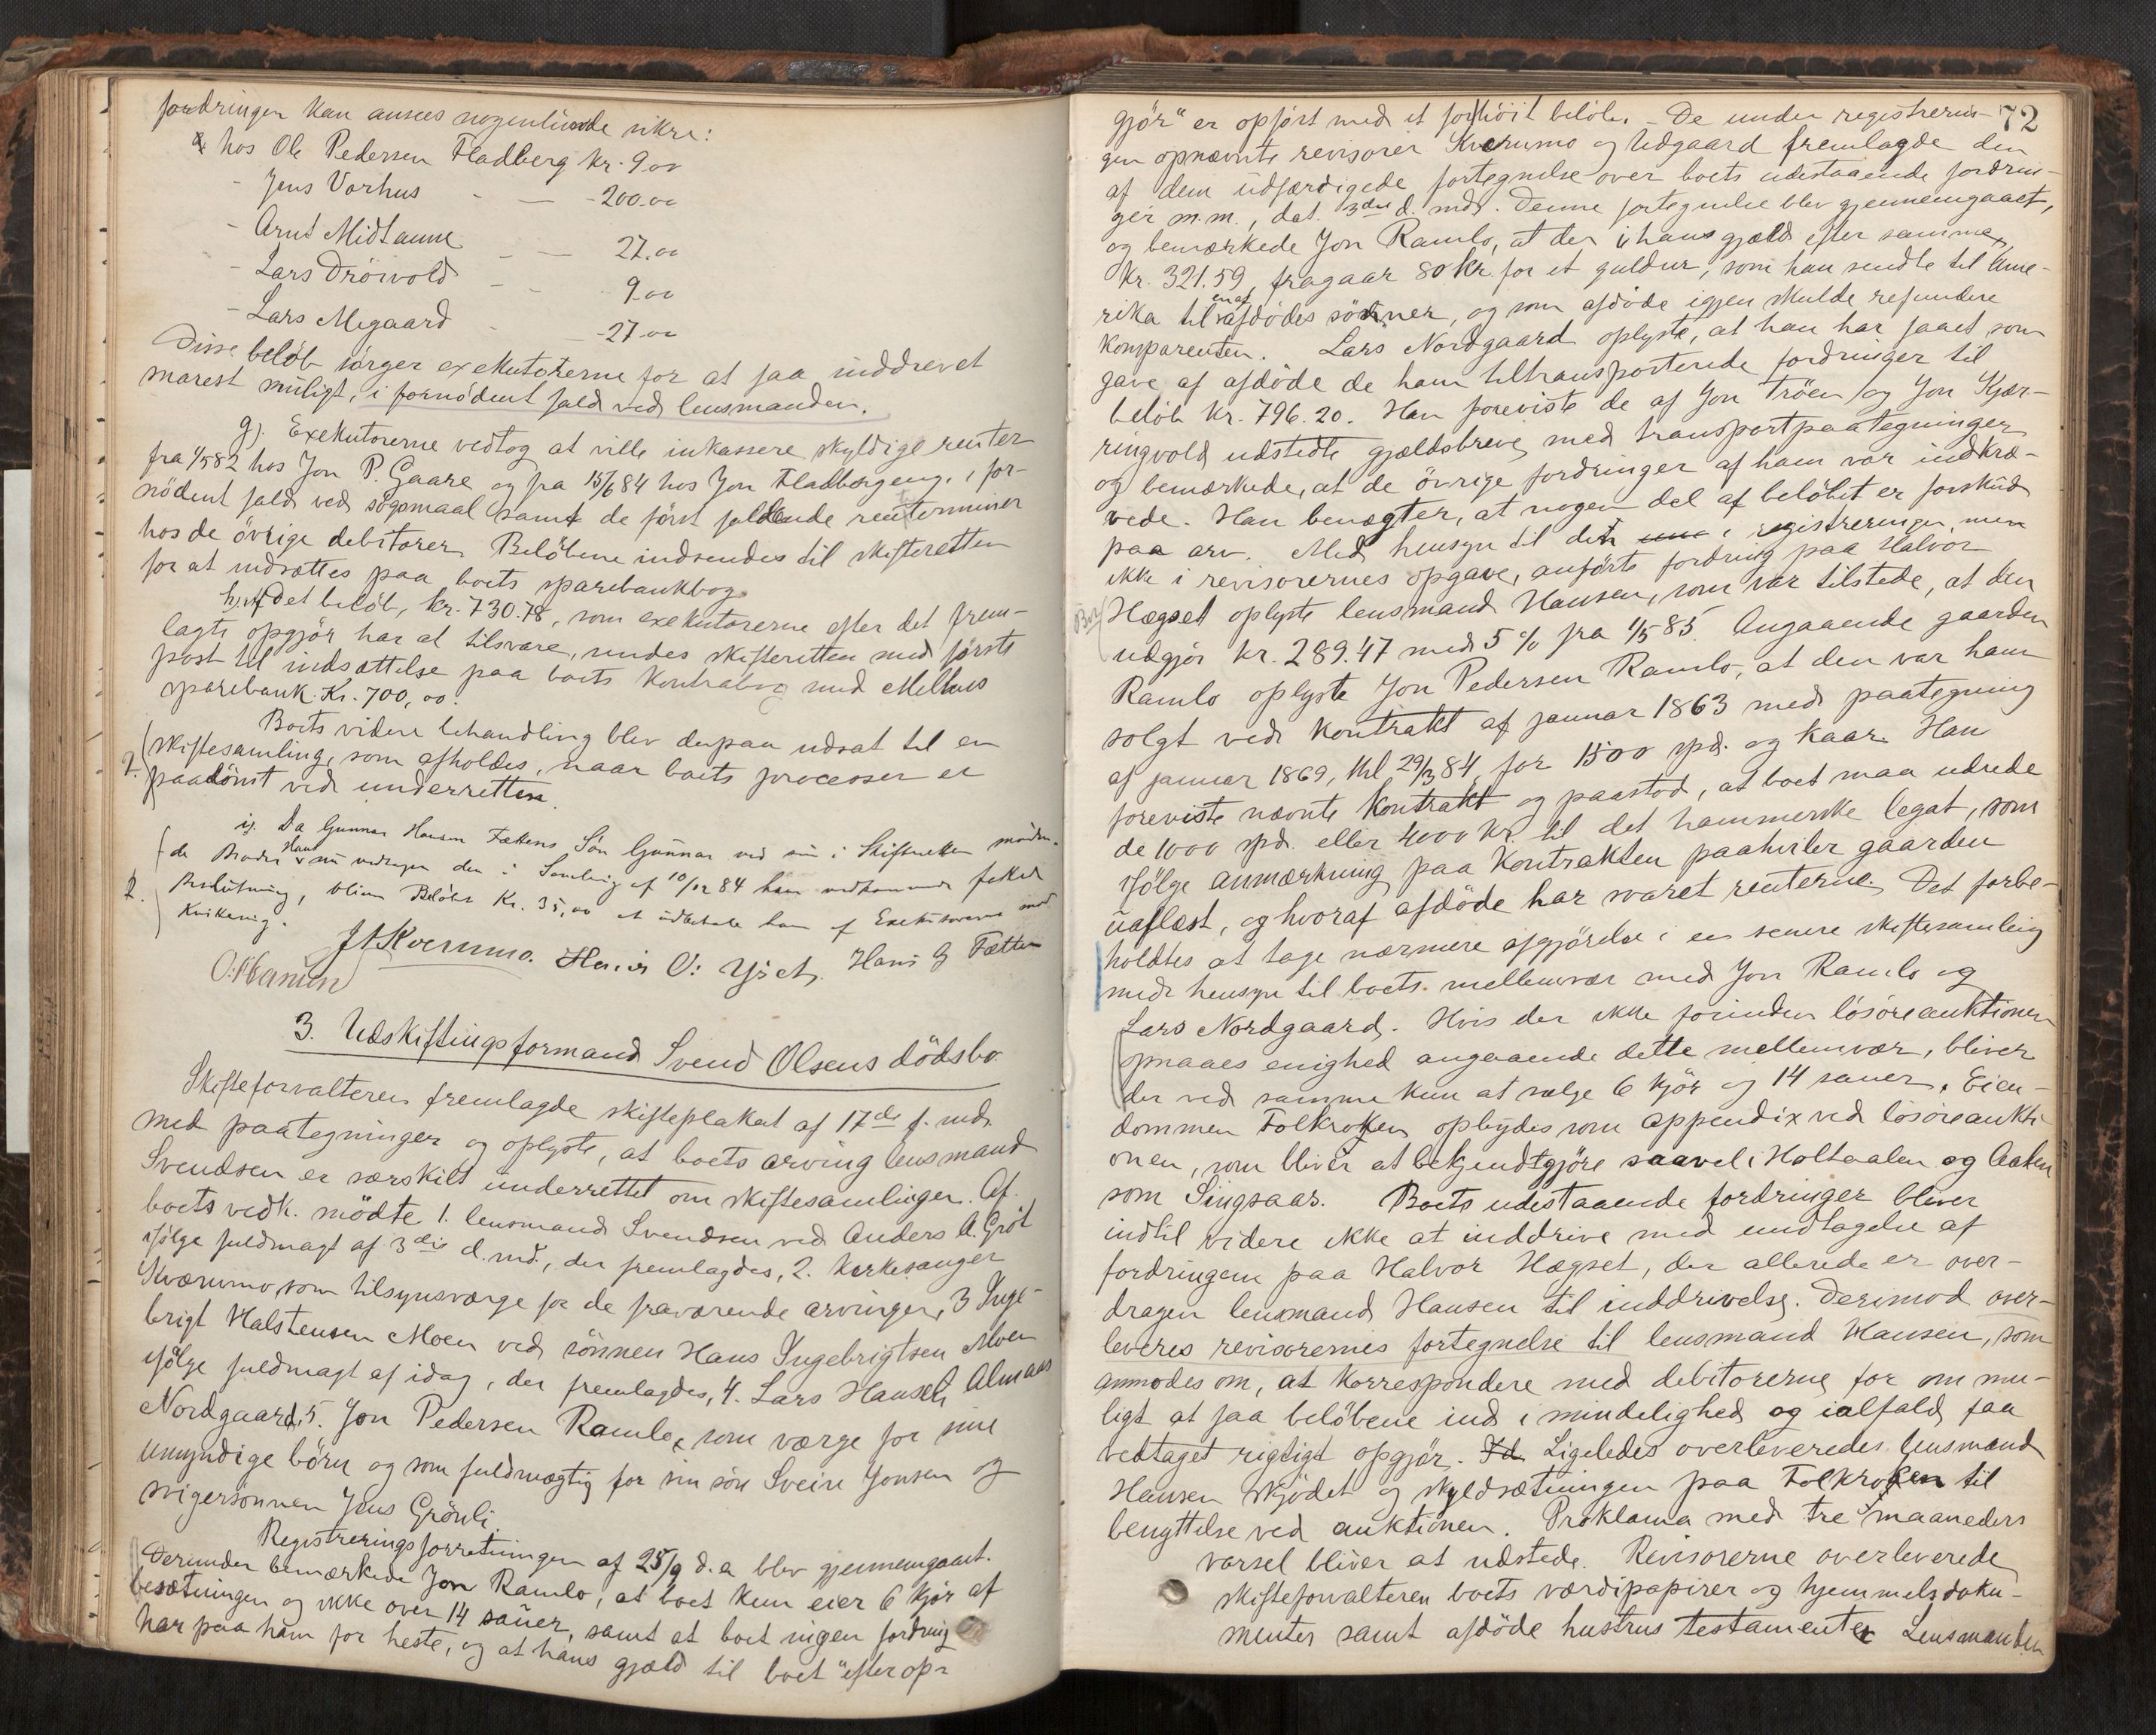 fordringer kan ansees nogenlunde sikre:
hos Ole Pedersen Fladberg kr. 9.00
- Jens Vorhus - - 200.00
- Arnt Midtaune - - 27.00
- Lars Dröivold - - 9.00
- Lars Megaard - - 27.00
Disse beløb sörger exekutorerne for at faa inddrevet
snarest muligt, i fornödent fald ved lensmanden.
g). Exekutorerne vedtog at ville inkassere skyldige renter
fra 1/5 82 hos Jon P. Gaare og fra 15/6 84 hos Jon Fladbergeng, i for-
nödent fald ved sögsmaal samt de först faldende renteterminer
hos de övrige debitorer. Belöbene indsendes til skifteretten
for at indsættes paa boets sparebankbog.
h). Af det belöb, kr. 730.78, som exekutorerne efter det frem-
lagte opgjör har at tilsvare, sendes skifteretten med förste
post til indsættelse paa boets kontrabog med Melhus
sparebank Kr. 700,00.
Boets videre behandling blev derpaa udsat til en
skiftesamling, som afholdes, naar boets processer er
paadömt ved underretten.
i). Da Gunnar Hansen Fættens Sön Gunnar ved sin i Skifteretten möden-
de Broder Hans nu vedtager den i Samling af 10/12 84 ham vedkommende fattede
Beslutning, bliver Beløbet Kr. 35,00 at udbetale ham af Exekutorerne mod
Kvittering.
J A Kverumo. Hans O: Yset. Hans G Fætten
O: Hansen
3. Udskiftingsformand Svend Olsens dödsbo.
Skifteforvalteren fremlagde skifteplakat af 17de f. md.
med paategninger og oplyste, at boets arving lensmand
Svendsen er særskilt underrettet om skiftesamlingen. Af
boets vedk. mödte 1. lensmand Svendsen ved Anders A. Gröt
ifölge fuldmagt af 3die d. md., der fremlagdes, 2. kirkesanger
Kværumo som tilsynsværge for de fraværende arvinger, 3 Inge-
brigt Halstensen Moen ved sönnen Hans Ingebrigtsen Moen
ifölge fuldmagt af idag, der fremlagdes, 4. Lars Hansen Almaas
Nordgaard, 5. Jon Pedersen Ramlo, som værge for sine
umyndige börn og som fuldmægtig for sin sön Svein Jonsen og
svigersönnen Jens Grönli.
Registreringsforretningen af 25/9 d. a blev gjennemgaaet.
Derunder bemærkede Jon Ramlo, at boet kun eier 6 kjör af
besætningen og ikke over 14 sauer, samt at boet ingen fordring
har paa ham for heste, og at hans gjæld til boet "efter op-
72
gjör" er opfört med et forhöit belöb. - De under registrerin-
gen opnævnte revisorer Kverumo og Udgaard fremlagde den
af dem udfærdigede fortegnelse over boets udestaaende fordrin-
ger m.m., dat. 3die d. md. Denne fortegnelse blev gjennemgaaet,
og bemærkede Jon Ramlo, at der i hans gjæld efter samme,
kr. 321.59, fragaar 80 kr. for et guldur, som han sendte til Ame-
rika til en af afdödes sönner, og som afdöde igjen skulde refundere
komparenten. Lars Nordgaard oplyste, at han har faaet som
gave af afdöde de ham tiltransporterede fordringer til
belöb kr. 796.20. Han foreviste de af Jon Tröen og Jon Kjær-
ringvold udstedte gjældsbreve med transportpaategninger
og bemærkede, at de övrige fordringer af ham var indkræ-
vede. Han benægter, at nogen del af belöbet er forskud
paa arv. Med hensyn til den i registreringen, men
ikke i revisorernes opgave, anförte fordring paa Halvor
Hægset oplyste lensmand Hansen, som var tilstede, at den
udgjör kr. 289.47 med 5 % fra 1/5 85. Angaaende gaarden
Ramlo oplyste Jon Pedersen Ramlo, at den var ham
solgt ved kontrakt af januar 1863 med paategning
af januar 1869, thl. 29/3 84, for 1500 spd. og kaar. Han
foreviste nævnte kontrakt og paastod, at boet maa udrede
de 1000 spd. eller 4000 kr. til det hammerske legat, som
ifölge anmærkning paa kontrakten paahviler gaarden
uaflæst, og hvoraf afdöde har svaret renterne. Det forbe-
holdtes at tage nærmere afgjörelse i en senere skiftesamling
med hensyn til boets mellemvær med Jon Ramlo og
Lars Nordgaard. Hvis der ikke forinden lösöreauktionen
opnaaes enighed angaaende dette mellemvær, bliver
der ved samme kun at sælge 6 kjör og 14 sauer. Eien-
dommen Folkroken opbydes som appendix ved lösöreaukti-
onen, som bliver at bekjendtgjöre saavel i Holtaalen og Aalen
som Singsaas. Boets udestaaende fordringer bliver
indtil videre ikke at inddrive med undtagelse af
fordringen paa Halvor Hægset, der allerede er over-
dragen lensmand Hansen til inddrivelse. Derimod over-
leveres revisorernes fortegnelse til lensmand Hansen, som
anmodes om, at korrespondere med debitorerne for om mu-
ligt at faa belöbene ind i mindelighed og ialfald faa
vedtaget rigtigt opgjör. Ligeledes overleveredes lensmand
Hansen skjödet og skyldsætningen paa Folkroken til
benyttelse ved auktionen. Proklama med tre maaneders
varsel bliver at udstede. Revisorerne overleverede
skifteforvalteren boets værdipapirer og hjemmelsdoku-
menter samt afdöde hustrus testamente. Lensmanden